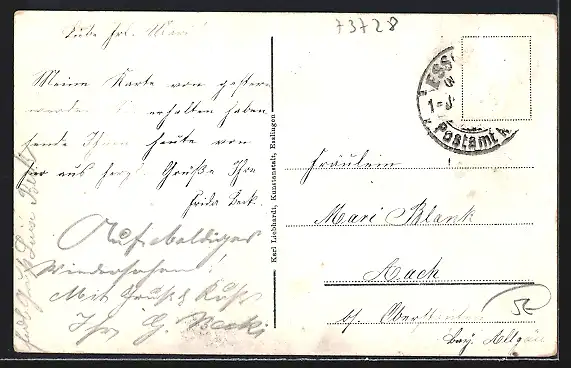 73728
Liebe Frl. Mari!
Meine Karte von gestern
werden Sie erhalten haben
sende Ihnen heute von
hier aus herzl. Grüße Ihre
Frida Beck.
Auf baldiges
Wiedersehen!
Mit Gruß & Kuß
Ihr G. Beck
Karl Liebhardt, Kunstanstalt, Esslingen
ESS
Postamt
Fräulein
Mari Blank
Aach
b/ Oberstaufen
bay. Allgäu